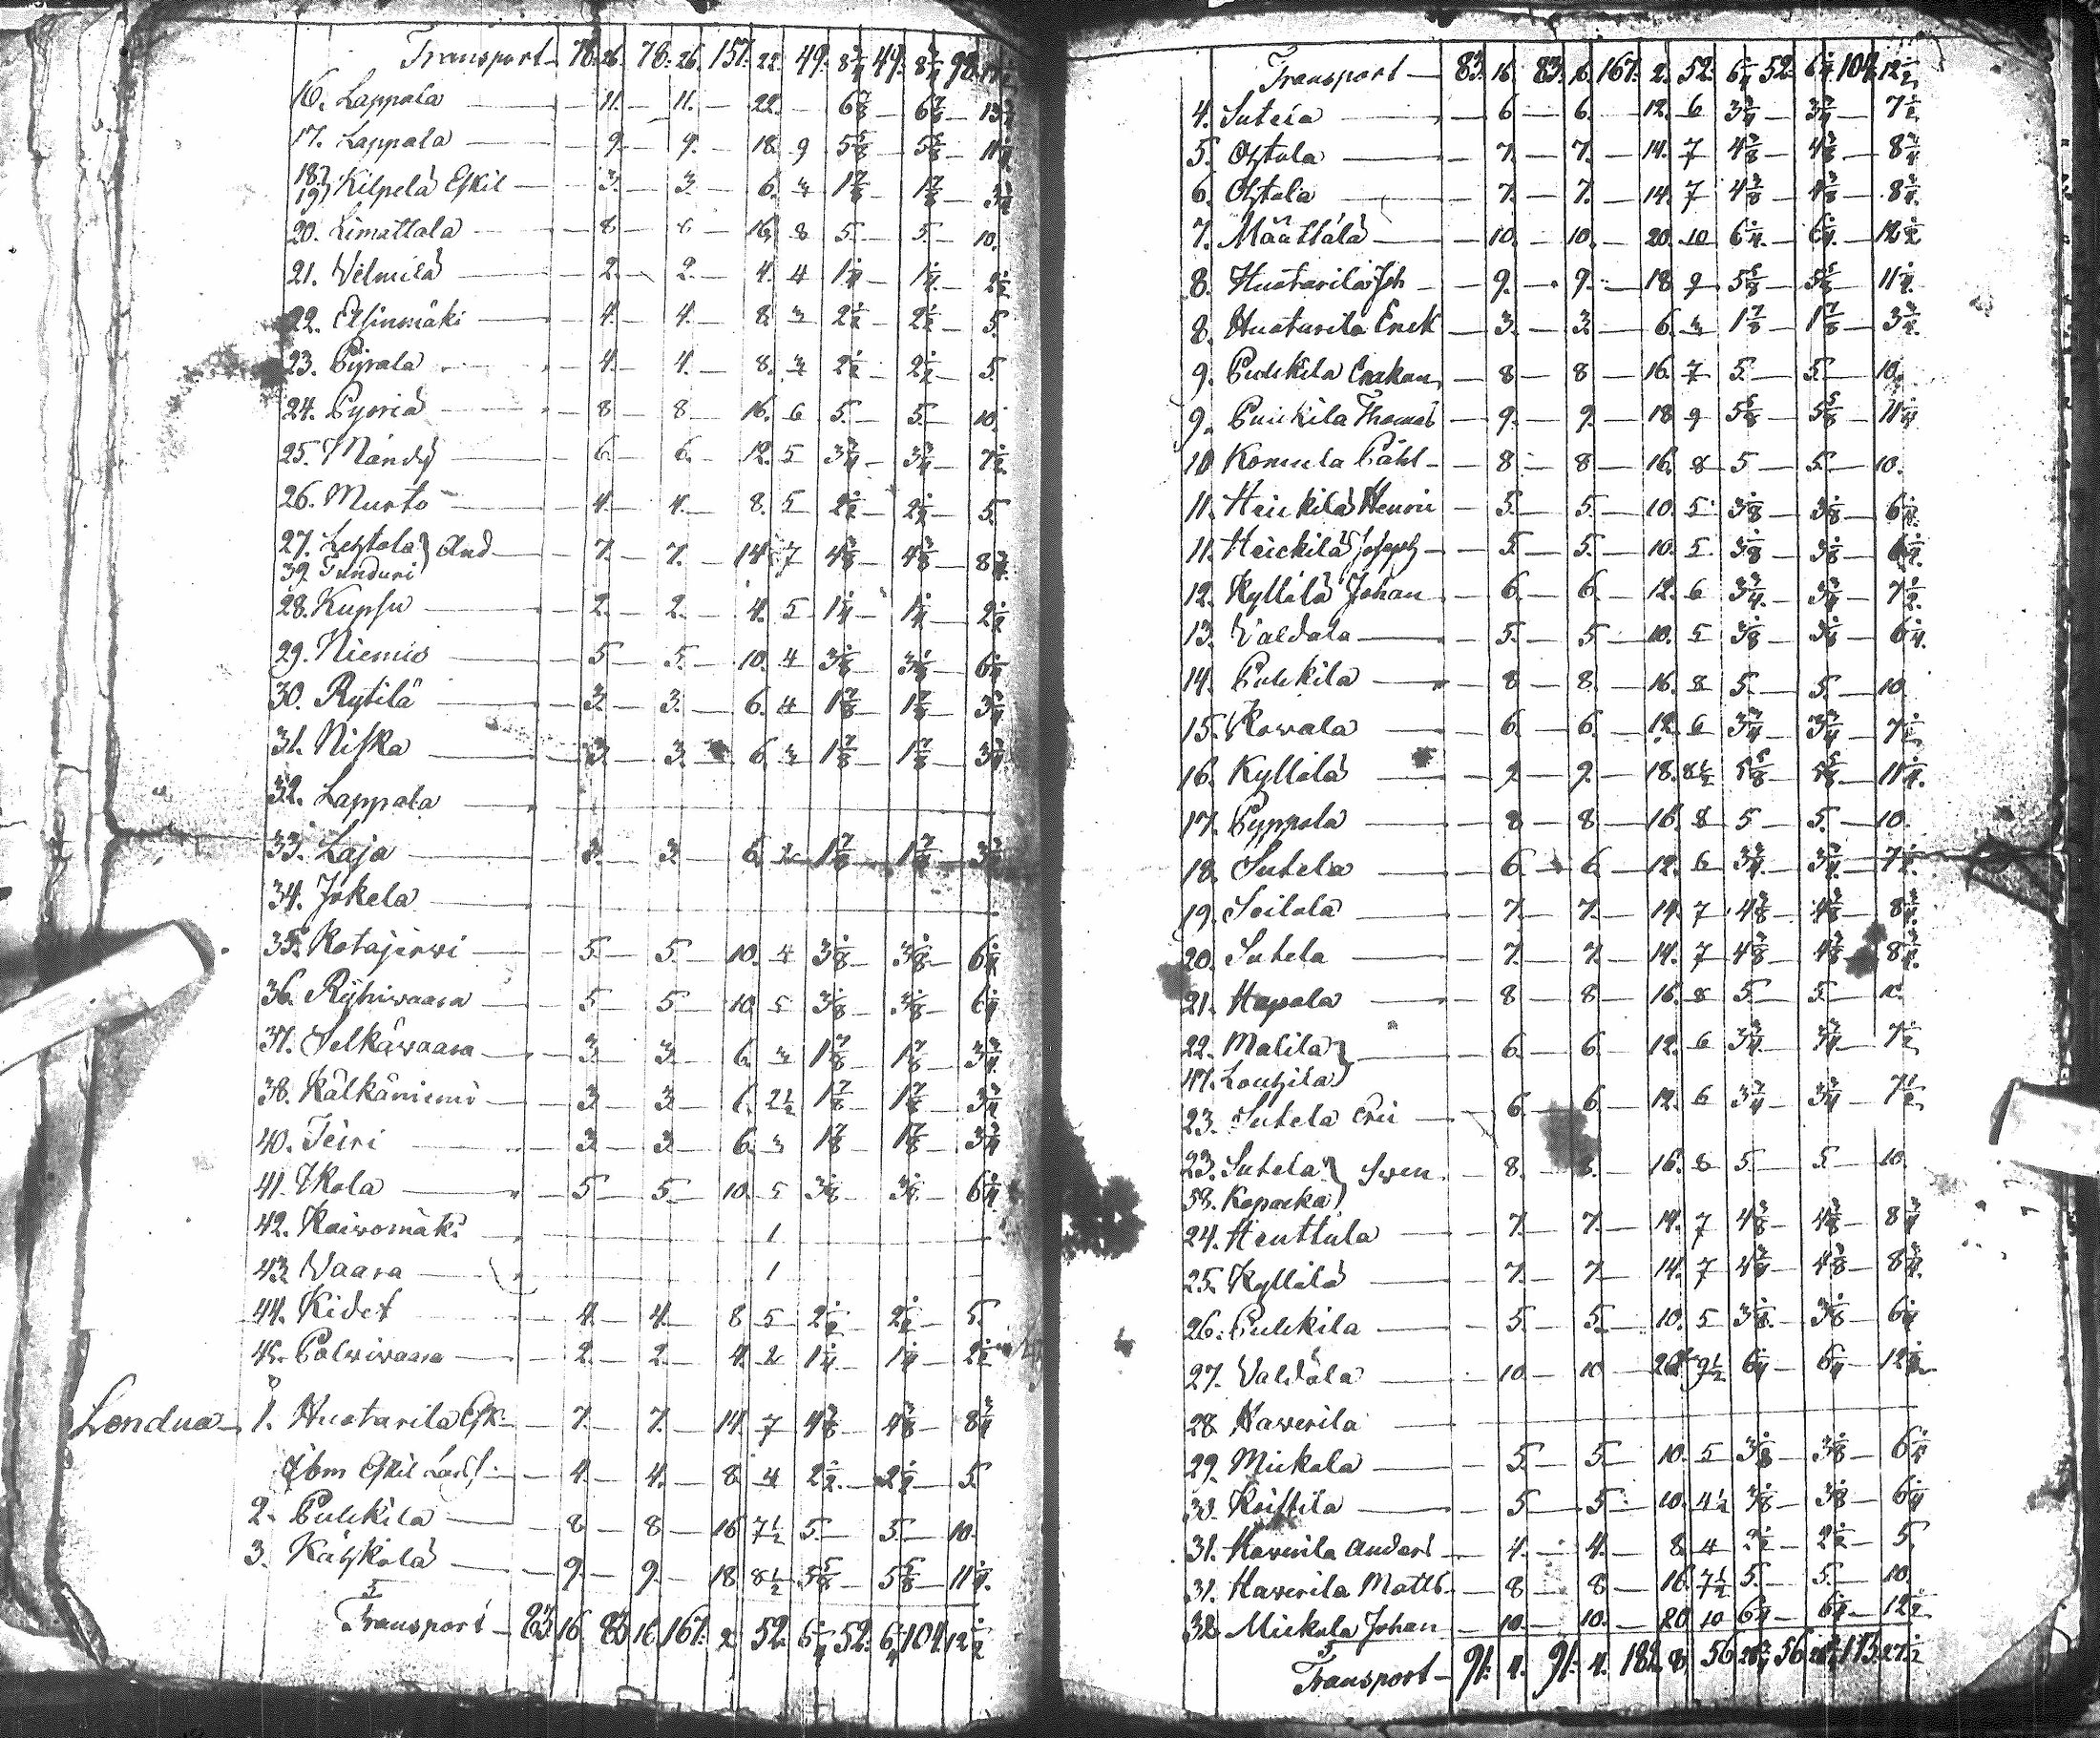 Transport 78. 26. 78. 26. 157. 22. 49. 8 3/4 49. 8 3/4 98. 17 1/2
16. Lappala — 11. — 11. — 22. — 6 7/8 — 6 7/8 — 13 3/4
17. Lappala — 9. — 9. — 18. 9 5 5/8 — 5 5/8 — 11 1/4
18. 19. Kilpelä Eskil — 3. — 3. — 6. 3 1 7/8 — 1 7/8 — 3 3/4
20. Limattala — 8 — 8 — 16. 8 5. — 5. — 10.
21. Wilmilä — 2. — 2. — 4. 4 1 1/4 — 1 1/4 — 2 1/2
22. Elsinmäki — 4. — 4. — 8. 3 2 1/2 — 2 1/2 — 5.
23. Pyrala — 4. — 4. — 8. 3 2 1/2 — 2 1/2 — 5.
24. Pyoriä — 8 — 8. — 16. 6 5. — 5. — 10.
25. Mändÿ — 6. — 6. — 12. 5 3 3/4 — 3 3/4 — 7 1/2
26. Murto — 4. — 4. — 8. 5 2 1/2 — 2 1/2 — 5.
27. Lehtola } And — 7. — 7. — 14. 7 4 3/8 — 4 3/8 — 8 3/4
39. Tunduri
28. Kupsu — 2. — 2. — 4. 5 1 1/4 — 1 1/4 — 2 1/2
29. Niemis — 5 — 5. — 10. 4 3 1/8 — 3 1/8 — 6 1/4
30. Rytilä — 3. — 3. — 6. 4 1 7/8 — 1 7/8 — 3 3/4
31. Niska — 3. — 3. — 6. 3 1 7/8 — 1 7/8 — 3 3/4
32. Lappala —
33. Laja — 3. — 3. — 6. 2 1 7/8 — 1 7/8 — 3 3/4
34. Jokela —
35. Kotajärwi — 5. — 5. — 10. 4 3 1/8 — 3 1/8 — 6 1/4
36. Ryhiwaara — 5. — 5. — 10. 5 3 1/8 — 3 1/8 — 6 1/4
37. Selkäwaara — 3. — 3. — 6. 3 1 7/8 — 1 7/8 — 3 3/4
38. Kälkäniemi — 3. — 3. — 6. 2 1/2 1 7/8 — 1 7/8 — 3 3/4
40. Teiri — 3. — 3. — 6. 3 1 7/8 — 1 7/8 — 3 3/4
41. Ikola — 5 — 5. — 10. 5 3 1/8 — 3 1/8 — 6 1/4
42. Kaiwomäki — 1
43. Waara — 1
44. Kidet — 4. — 4. — 8 5 2 1/2 — 2 1/2 — 5.
45. Palwiwaara — 2. — 2. — 4. 2 1 1/4 — 1 1/4 — 2 1/2
Londua — 1. Huotarila Esk. — 7. — 7. — 14. 7 4 3/8 — 4 3/8 — 8 3/4
Ibm Eskil — 4. — 4. — 8. 4 2 1/2 — 2 1/2 — 5.
2. Pulckila — 8 — 8 — 16 7 1/2 5. — 5. — 10.
3. Kähkölä — 9. — 9. — 18. 8 1/2 5 5/8 — 5 5/8 — 11 1/4
Transport — 83. 16. 83. 16. 167. 2. 52. 6 1/4 52. 6 1/4 104. 12 1/2
Transport — 83. 16. 83. 16. 167. 2. 52. 6 1/4 52. 6 1/4 104. 12 1/2
4. Sutela — 6 — 6. — 12. 6 3 3/4 — 3 3/4 — 7 1/2
5. Ohtala — 7. — 7. — 14. 7 4 3/8 — 4 3/8 — 8 3/4
6. Ohtala — 7. — 7. — 14. 7 4 3/8 — 4 3/8 — 8 3/4
7. Määttälä — 10. — 10. — 20. 10 6 1/4 — 6 1/4 — 12 1/2
8. Huotarila Joh — 9. — 9. — 18. 9 5 5/8 — 5 5/8 — 11 1/4
8. Huotarila Erick — 3. — 3. — 6. 3 1 7/8 — 1 7/8 — 3 3/4
9. Pulckila — 8 — 8 — 16. 7 5. — 5. — 10.
9. Pulckila Thomas — 9. — 9. — 18 9 5 5/8 — 5 5/8 — 11 1/4
10. Komula Påhl — 8 — 8 — 16. 8 5 — 5. — 10.
11. Heickilä Henric — 5. — 5. — 10. 5 3 1/8 — 3 1/8 — 6 1/4
11. Heickilä Joseph — 5. — 5. — 10. 5. 3 1/8 — 3 1/8 — 6 1/4
12. Kyllölä Johan — 6. — 6. — 12. 6 3 3/4 — 3 3/4 — 7 1/2
13. Valdala — 5. — 5 — 10. 5 3 1/8 — 3 1/8 — 6 1/4
14. Pulckila — 8 — 8. — 16. 8 5. — 5. — 10
15. Rowala — 6 — 6. — 12. 6 3 3/4 — 3 3/4 — 7 1/2
16. Kyllölä — 9 — 9. — 18. 8 1/2 5 5/8 — 5 5/8 — 11 1/4
17. Pyppola — 8 — 8 — 16. 8 5 — 5. — 10.
18. Sutela — 6. — 6. — 12. 6 3 3/4 — 3 3/4 — 7 1/2
19. Seilola — 7. — 7. — 14. 7 4 3/8 — 4 3/8 — 8 3/4
20. Sutela — 7. — 7. — 14. 7 4 3/8 — 4 3/8 — 8 3/4
21. Hapala — 8 — 8 — 16. 8 5. — 5. — 10.
22. Malila } — 6. — 6. — 12. 6 3 3/4 — 3 3/4 — 7 1/2
47. Louhila
23. Sutela Eric — 6. — 6 — 12. 6 3 3/4 — 3 3/4 — 7 1/2
23. Sutela } Swen — 8. — 8. — 16. 8 5. — 5. — 10.
58. Kopacka
24. Heuttula — 7. — 7. — 14. 7 4 3/8 — 4 3/8 — 8 3/4
25. Kyllölä — 7. — 7. — 14. 7 4 3/8 — 4 3/8 — 8 3/4
26. Pulckila — 5. — 5. — 10. 5 3 1/8 — 3 1/8 — 6 1/4
27. Valdala — 10. — 10 — 20. 9 1/2 6 1/4 — 6 1/4 — 12 1/2
28. Hawerila —
29. Mickola — 5. — 5. — 10. 5 3 1/8 — 3 1/8 — 6 1/4
30. Koistila — 5 — 5 — 10. 4 1/2 3 1/8 — 3 1/8 — 6 1/4
31. Hawerila Anders — 4. — 4. — 8. 4 2 1/2 — 2 1/2 — 5.
31. Hawerila Matts — 8 — 8 — 16. 7 1/2 5. — 5. — 10.
32. Mickola Johan — 10. — 10. — 20 10 6 1/4 — 6 1/4 — 12 1/2
Transport — 91. 4. 91. 4. 182. 8. 56 56 113. 27 1/2